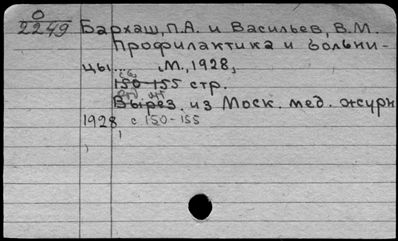 О
2249 Бархаш, П.А. и Васильев, В.М.
Профилактика и больни-
цы.... М., 1928,
150-155 стр.
Вырез. из Моск. мед. журн
1928 с 150-155